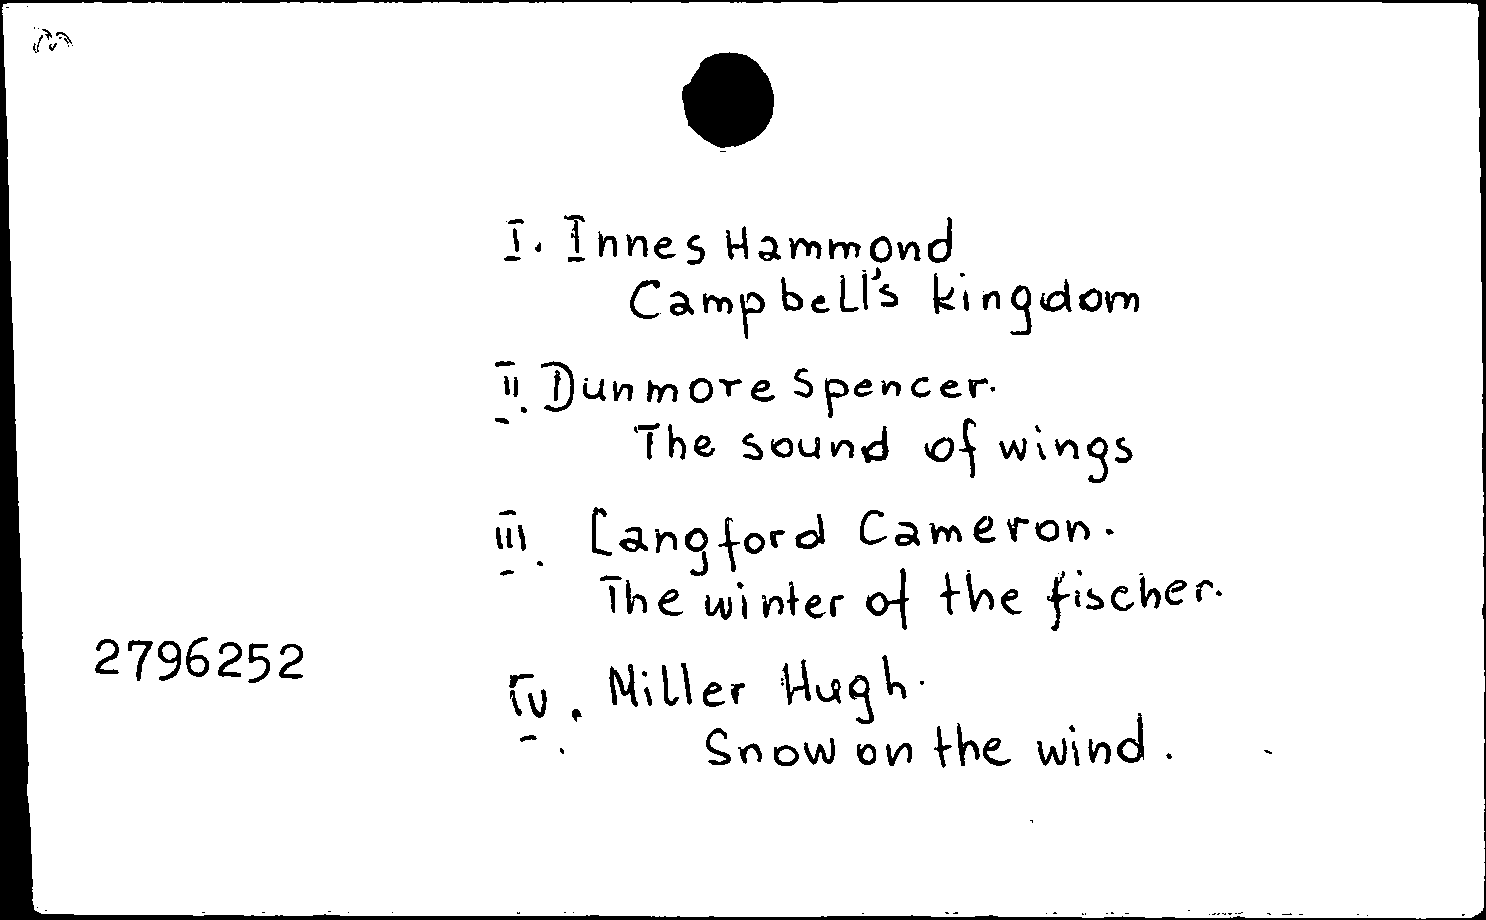 I. Innes Hammond
Campbell's kingdom
II. Dunmore Spencer.
The sound of wings
III. Langford Cameron.
The winter of the fischer.
2796252
IV. Miller Hugh.
Snow on the wind.